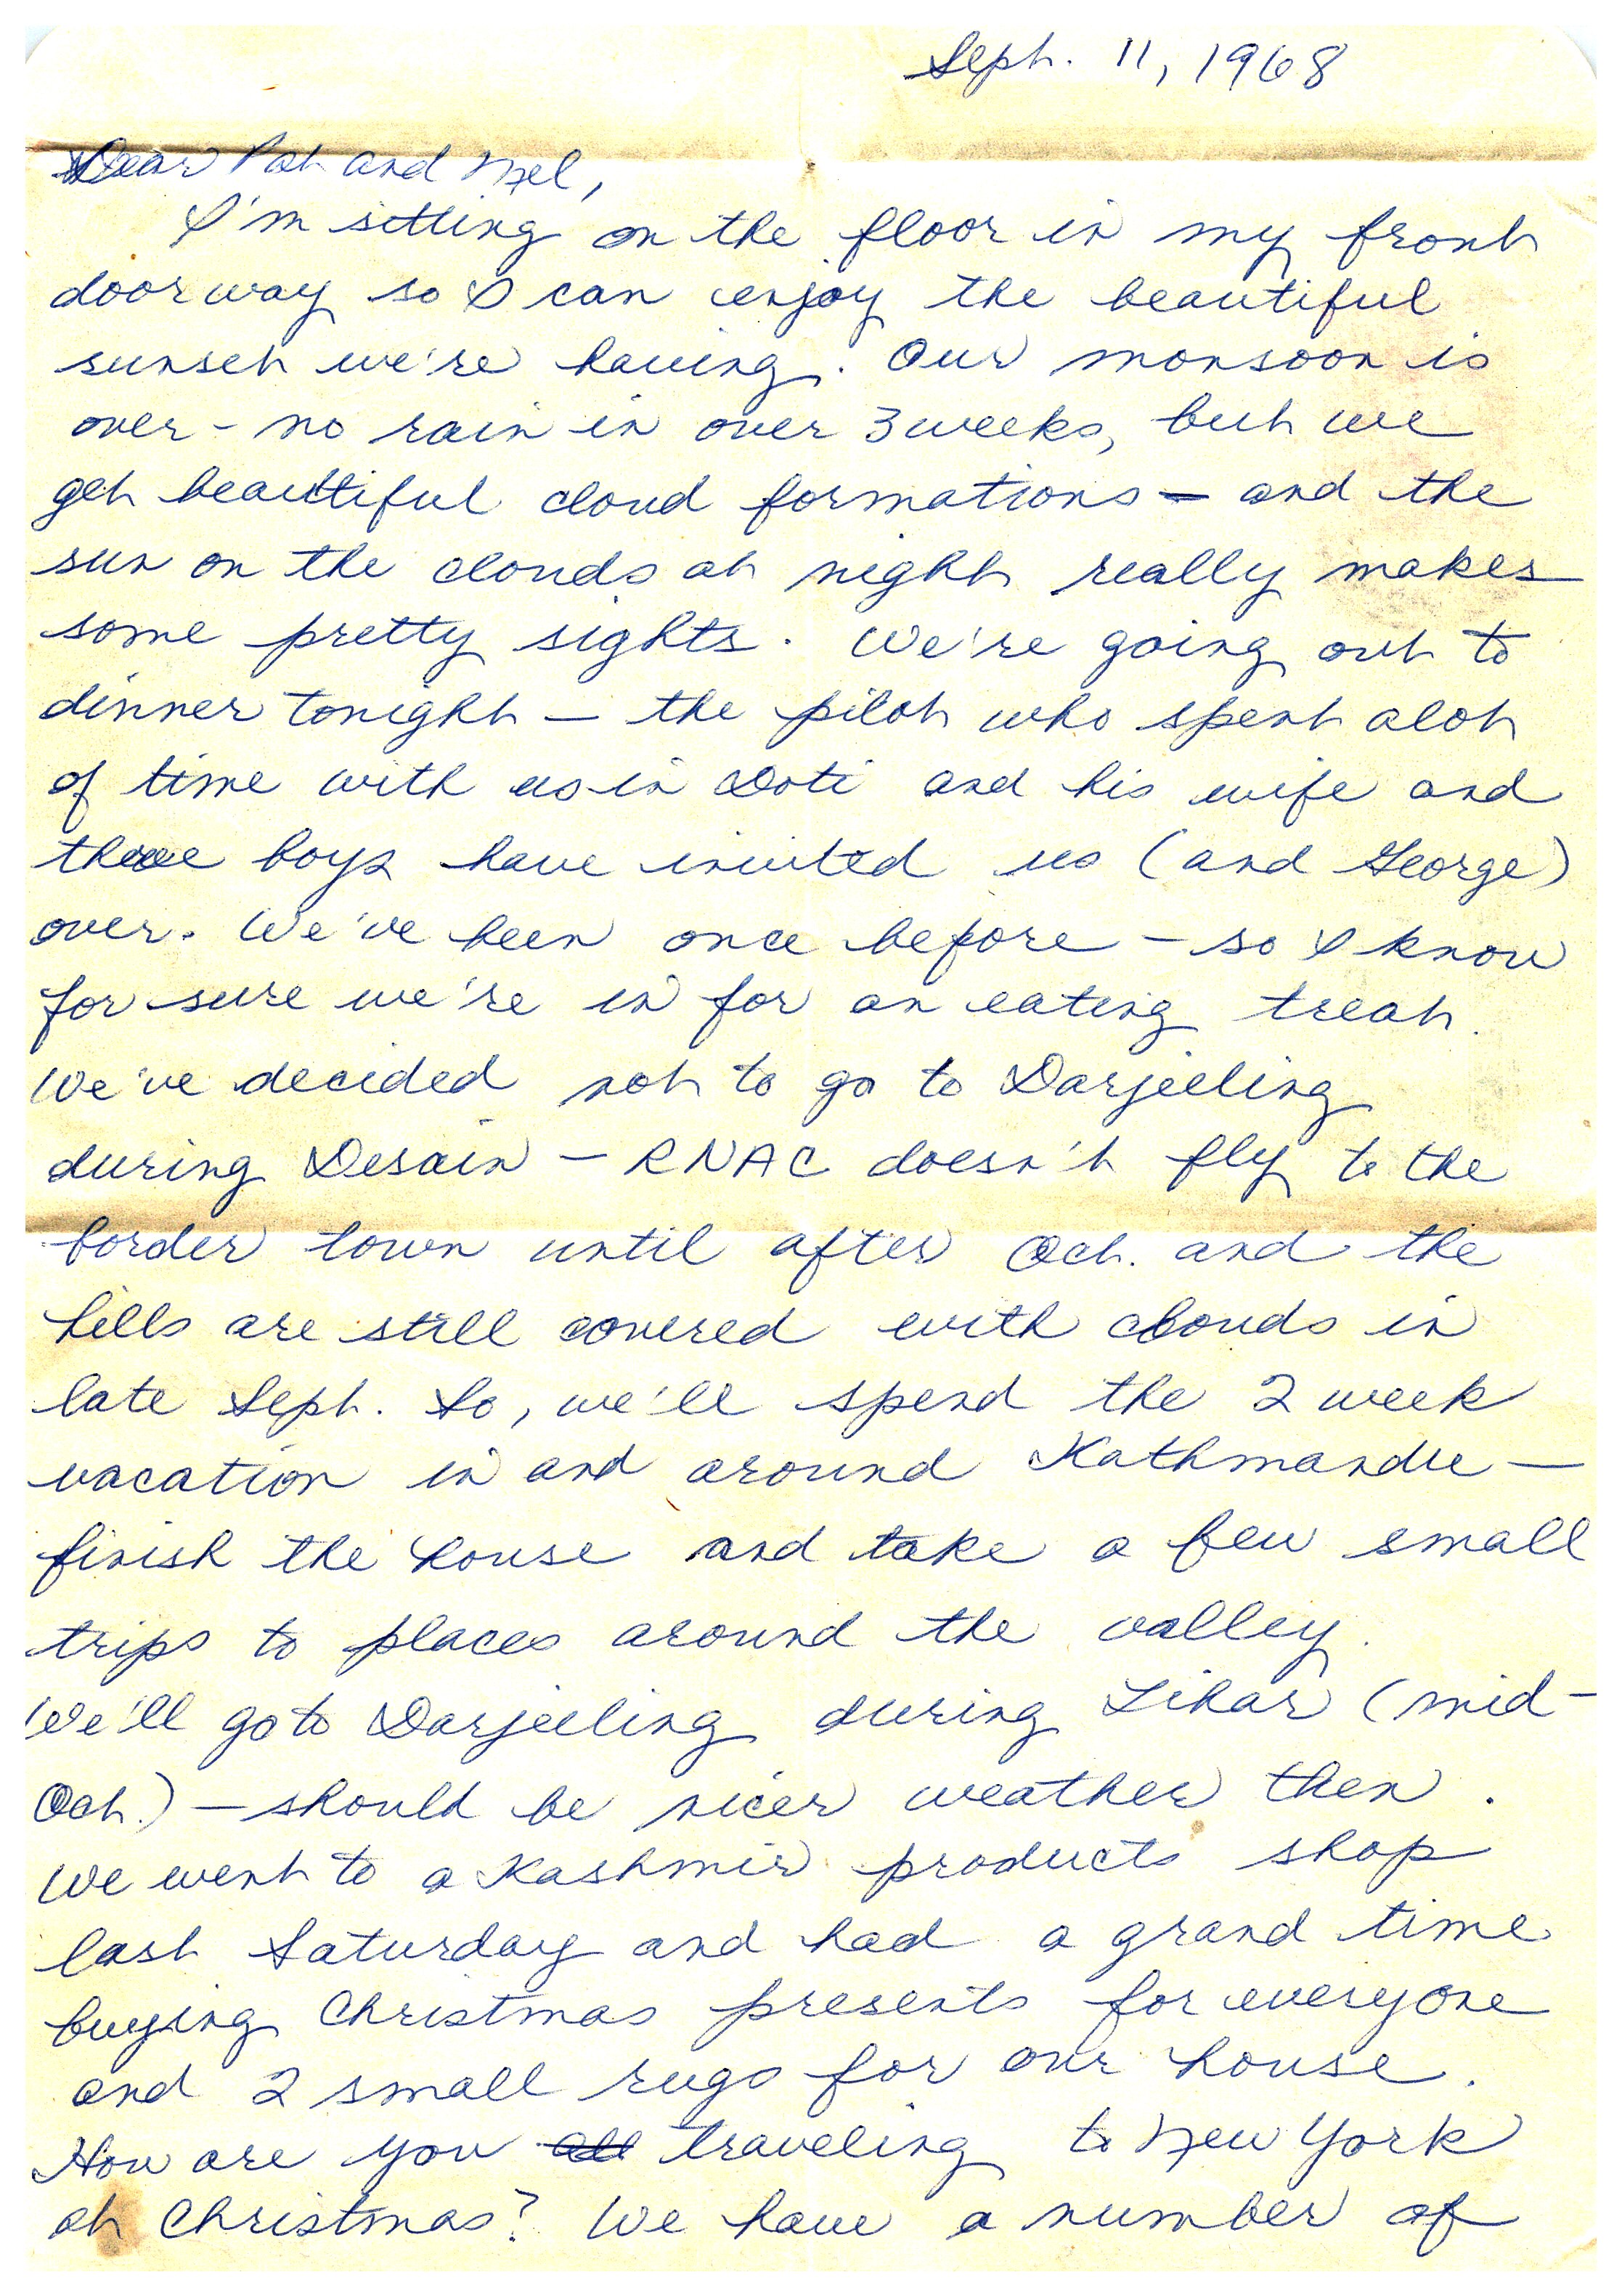 Sept. 11, 1968
Dear Pat and Mel,
I'm sitting on the floor in my front
doorway so I can enjoy the beautiful
sunset we're having. Our monsoon is
over - no rain in over 3 weeks, but we
get beautiful cloud formations - and the
sun on the clouds at night really makes
some pretty sights. We're going out to
dinner tonight - the pilot who spent alot
of time with us in Doti and his wife and
three boys have invited us (and George)
over. We've been once before - so I know
for sure we're in for an eating treat.
We've decided not to go to Darjeeling
during Desain - RNAC doesn't fly to the
border town until after Oct. and the
hills are still covered with clouds in
late Sept. So, we'll spend the 2 week
vacation in and around Kathmandu -
finish the house and take a few small
trips to places around the valley.
We'll go to Darjeeling during Tihar (mid-
Oct.) - should be nicer weather then.
We went to a Kashmir products shop
last Saturday and had a grand time
buying Christmas presents for everyone
and 2 small rugs for our house.
How are you all traveling to New York
at Christmas? We have a number of